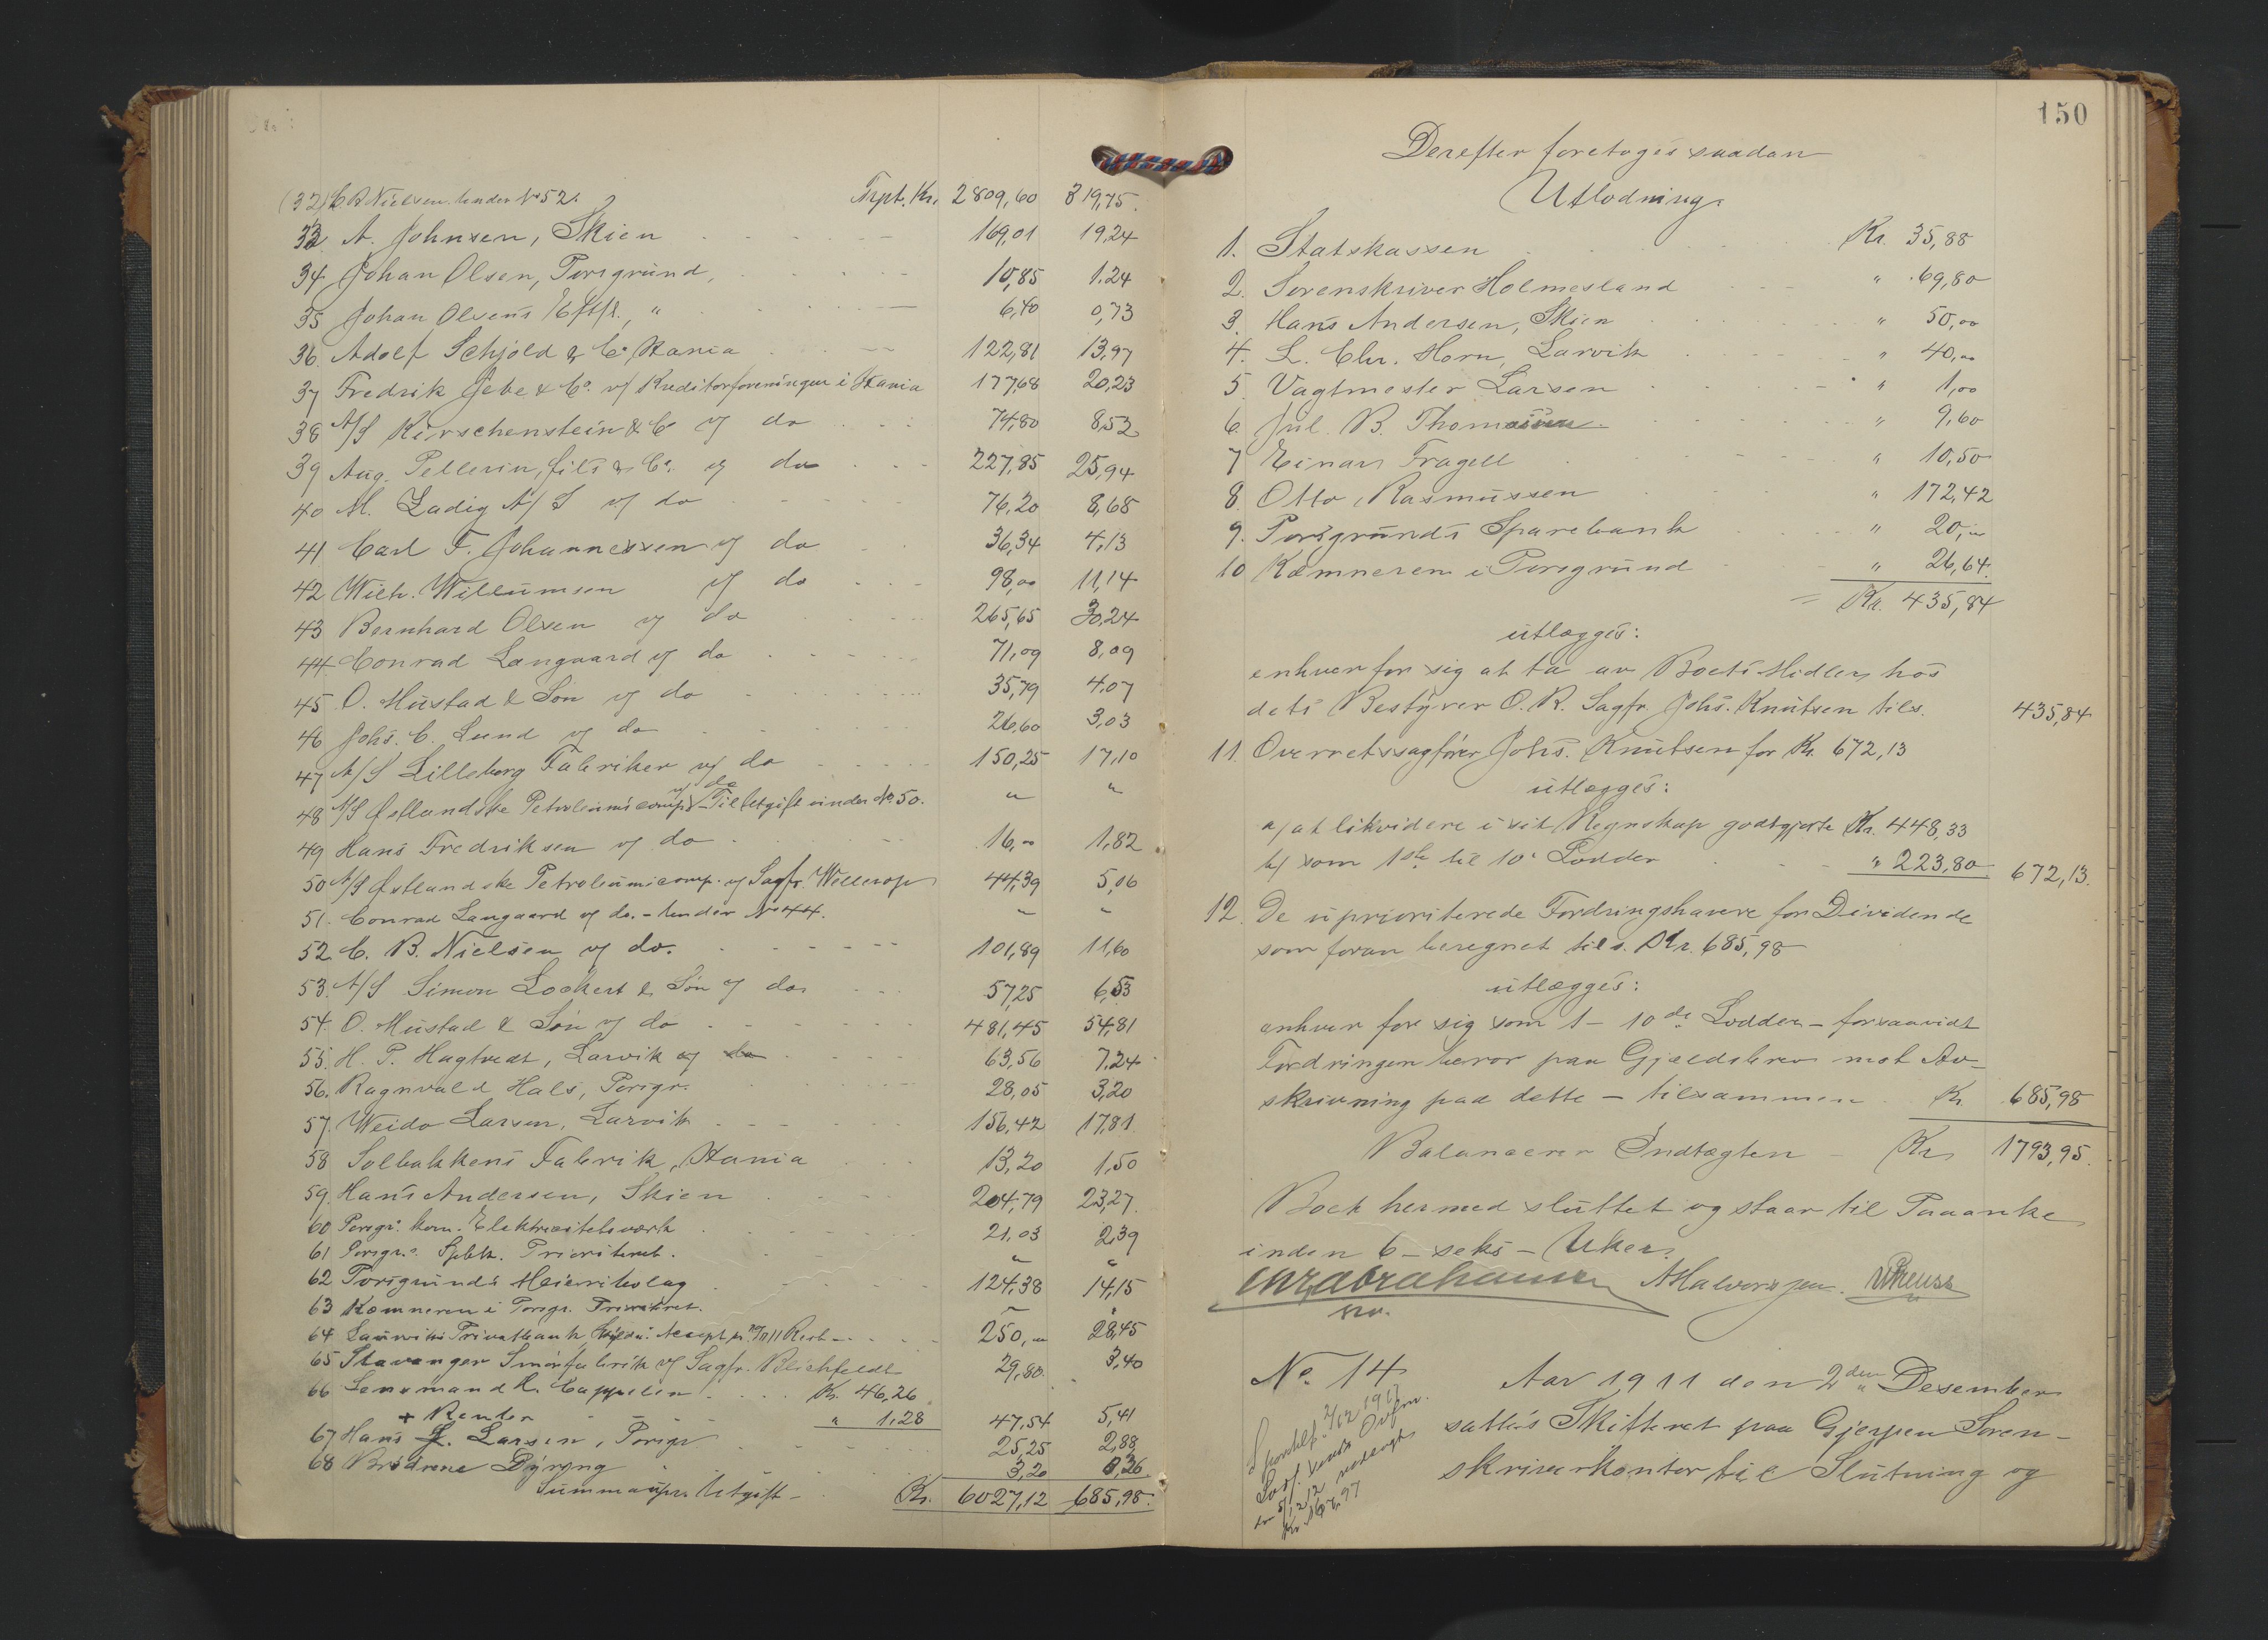 (32) C. B. Nielsen. Under No 52. Trpt. Kr. 2809,60 319,75.
33 A. Johnsen, Skien 169,01 19,24
34 Johan Olsen, Porsgrund, 10,85 1.24
35 Johan Olsens Eftfl. " 6,40 0,73
36. Adolf Schjold & Co, Kania 122,81 13,97
37 Fredrik Jebe & Co. v/ Kreditorforeningen i Kania 177,68 20,23
38 A/S Kirschenstein & Co v/ do 74,80 8,53
39 Aug. Pellerin, fils & Co. v/ do 227,85 25,94
40 M. Zadig A/S v/ do 76,20 8,68
41 Carl F. Johannessen v/ do 36,34 4,13
42 Wilh. Willumsen v/ do 98,00 11,14
43 Bernhard Olsen v/ do 265,65 30,24
44 Conrad Langaard v/ do 71,09 8,09
45 O. Mustad & Søn v/ do 35,79 4,07
46 Johs. C. Lund v/ do 26,60 3,03
47 A/S Lilleborg Fabriker v/ do 150,25 17,10
48 A/S Østlandske Petroleumscomp. v/ do – Til Utgift under No 50. " "
49 Hans Fredriksen v/ do 16,00 1,82
50 A/S Østlandske Petroleumscomp. v/ Sagfr. Wellerop 44,39 5,06
51. Conrad Langaard v/ do. – Under No 44. – –
52 C. B. Nielsen v/ do. 101,89 11,60
53. A/S Simon Lockert & Søn v/ do 57,25 6,53
54. O. Mustad & Søn v/ do 481,45 54,81
55. H. P. Hagtvedt, Larvik v/ do 63,56 7.24
56. Ragnvald Hals, Porsgr. 28,05 3,20
57. Weido Larsen, Larvik 156,42 17,81
58 Solbakkens Fabrik, Kania 13,20 1,50
59. Hans Andersen, Skien 204,79 23,27.
60 Porsgr. kom. Elektricitetsverk 21,03 2,39
61 Porsgr. Spbk. Prioriteret. " "
62 Porsgrunds Meieribolag 124,38 14,15
63 Kæmneren i Porsgr. Prioriteret. – "
64 Laurviks Privatbank, Accept pr. 11 Rest 250,00 28,45
65 Stavanger Smørfabrik v/ Sagfr. Blichfeldt 29,80. 3,40
66 Lensmand R. Cappelen Kr. 46,26
+ Renter " 1,28 47,54 5,41
67 Hans L. Larsen, Porsgr. 25,25 2,88
68 Brødrene Dyring 3,20 0,36
Summa upr. Utgift – Kr. 6027,12 685,98.
150
Derefter foretoges saadan
Utlodning.
1. Statskassen Kr. 35,88
2. Sorenskriver Holmesland " 69,80
3. Hans Andersen, Skien " 50,00
4. L. Chr. Horn, Larvik " 40,00
5. Vagtmester Larsen " 1,00
6. Jul. B. Thomassen " 9,60
7 Einar Fragell " 10,50
8. Otto Rasmussen " 172,42
9. Porsgrunds Sparebank " 20,00
10 Kæmneren i Porsgrund " 26,64.
= Kr. 435,84
utlægges:
enhver for sig at ta av Boets Midler hos
dets Bestyrer O. R. Sagfr. Johs. Knutsen tils. 435,84
11. Overretssagfører Johs. Knutsen for Kr. 672,13
utlægges:
a/ at likvidere i sit Regnskap godtgjorte Kr. 448,33
b/ som 1ste til 10. Lodder " 223,80 672,13.
12. De uprioriterede Fordringshavere for Dividende
som foran beregnet tils. Kr. 685,98
utlægges:
enhver for sig som 1 – 10de Lodder – forsaavidt
Fordringen beror paa Gjældsbrev mot Av-
skrivning paa dette – tilsammen Kr. 685,98
Balancerer Indtægten – Kr. 1793,95.
Boet hermed sluttet og staar til Paaanke
inden 6 – seks – Uker.
A Halvorsen.
No. 14
Aar 1911 den 2den Desember
sattes Skifteret paa Gjerpen Soren-
skriverkontor til Slutning og